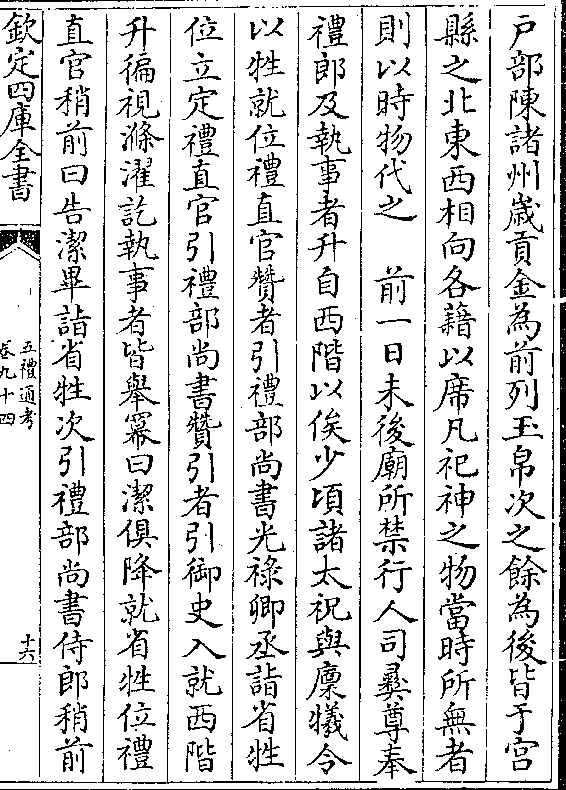 戶部陳諸州歲貢金為前列玉帛次之餘為後皆于宮
縣之北東西相向各藉以席凡祀神之物當時所無者
則以時物代之　前一日未後廟所禁行人司彞尊奉
禮郎及執事者升自西階以俟少頃諸太祝與廩犧令
以牲就位禮直官贊者引禮部尚書光祿卿丞詣省牲
位立定禮直官引禮部尚書贊引者引御史入就西階
升徧視滌濯訖執事者皆舉羃曰潔俱降就省牲位禮
直官稍前曰告潔畢詣省牲次引禮部尚書侍郎稍前
欽定四庫全書
五禮通考
卷九十四
十六